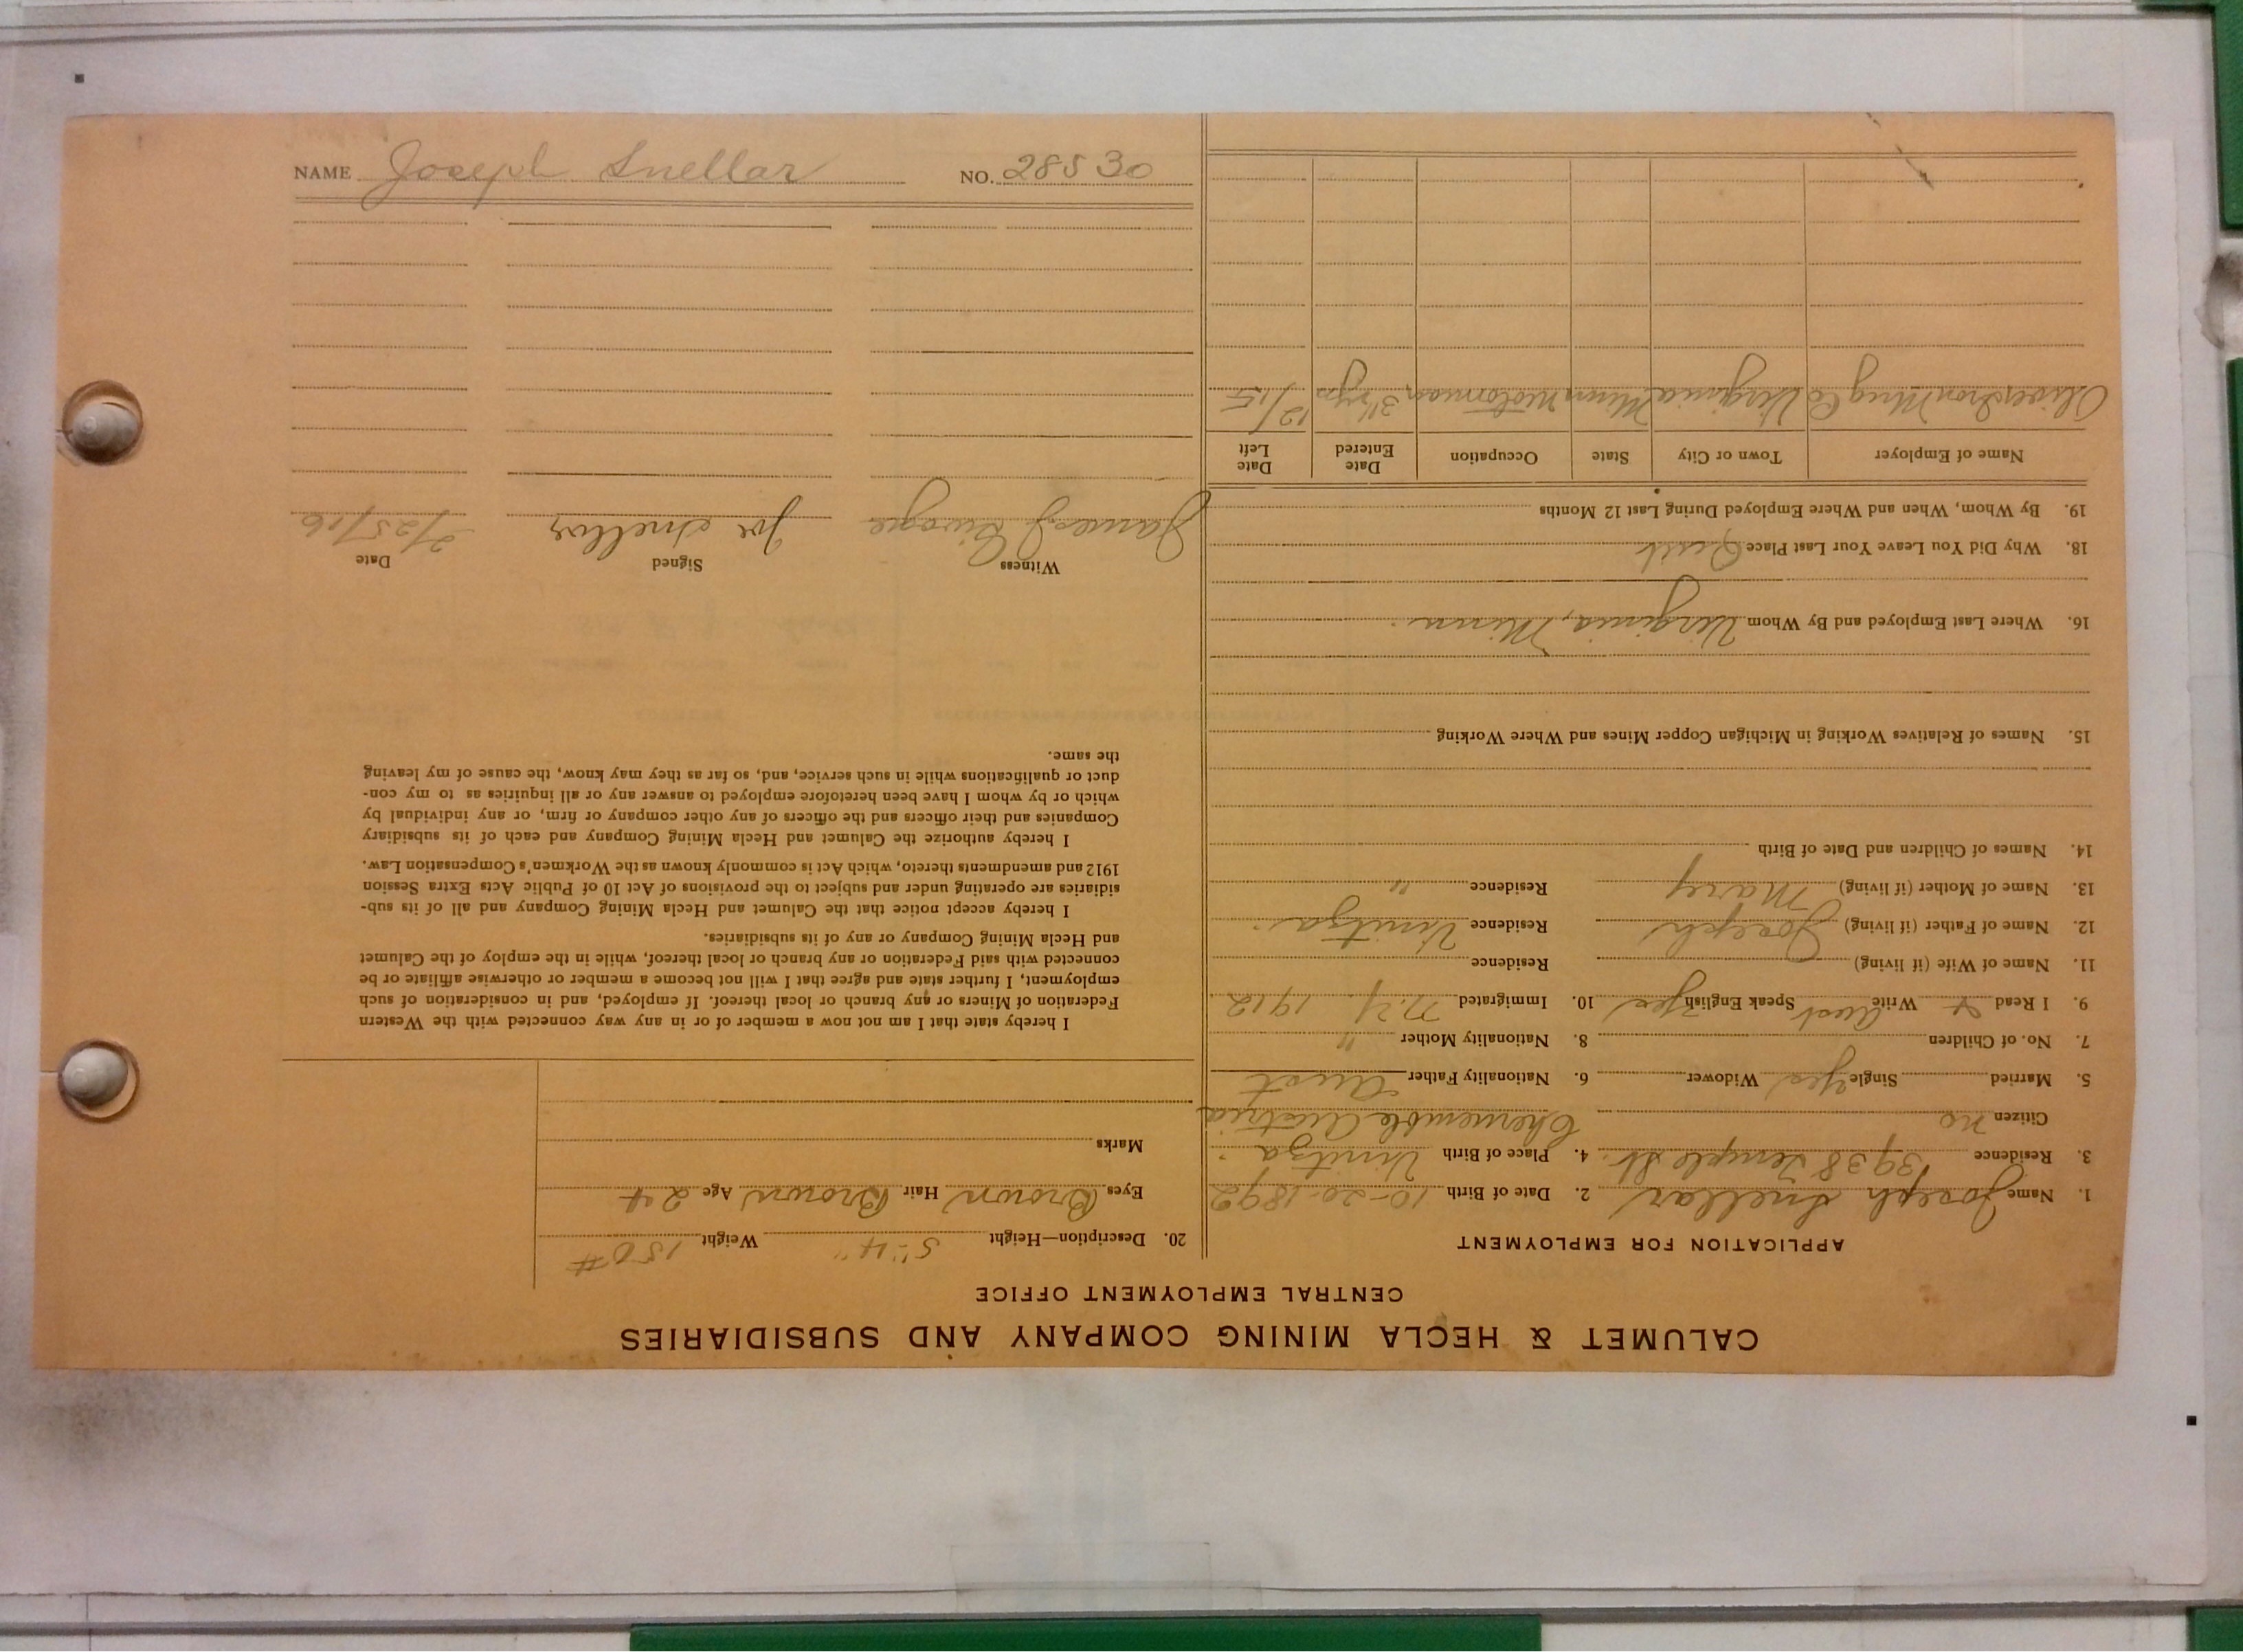 CALUMET & HECLA MINING COMPANY AND SUBSIDIARIES
CENTRAL EMPLOYMENT OFFICE
APPLICATION FOR EMPLOYMENT
1. Name Joseph Snellar 2. Date of Birth 10-20-1892
3. Residence 3938 Temple St. 4. Place of Birth Vinitza
Citizen no Chernemble Austria
5. Married Single yes Widower 6. Nationality Father Aust
7. No. of Children 8. Nationality Mother "
9. I Read & Write Aust Speak English yes 10. Immigrated N.Y. 1912
11. Name of Wife (if living) Residence
12. Name of Father (if living) Joseph Residence Vinitza
13. Name of Mother (if living) Mary Residence "
14. Names of Children and Date of Birth
15. Names of Relatives Working in Michigan Copper Mines and Where Working
16. Where Last Employed and By Whom Virginia, Minn.
18. Why Did You Leave Your Last Place Quit
19. By Whom, When and Where Employed During Last 12 Months
Name of Employer Town or City State Occupation Date Entered Date Left
Oliver Iron Mng Co Virginia Minn Motorman 3½ yrs 12/15
20. Description—Height 5' 4" Weight 150 #
Eyes Brown Hair Brown Age 24
Marks
I hereby state that I am not now a member of or in any way connected with the Western
Federation of Miners or any branch or local thereof. If employed, and in consideration of such
employment, I further state and agree that I will not become a member or otherwise affiliate or be
connected with said Federation or any branch or local thereof, while in the employ of the Calumet
and Hecla Mining Company or any of its subsidiaries.
I hereby accept notice that the Calumet and Hecla Mining Company and all of its sub-
sidiaries are operating under and subject to the provisions of Act 10 of Public Acts Extra Session
1912 and amendments thereto, which Act is commonly known as the Workmen's Compensation Law.
I hereby authorize the Calumet and Hecla Mining Company and each of its subsidiary
Companies and their officers and the officers of any other company or firm, or any individual by
which or by whom I have been heretofore employed to answer any or all inquiries as to my con-
duct or qualifications while in such service, and, so far as they may know, the cause of my leaving
the same.
Witness Signed Date
James J Joe Snellar 2/25/16
NAME Joseph Snellar NO. 28530